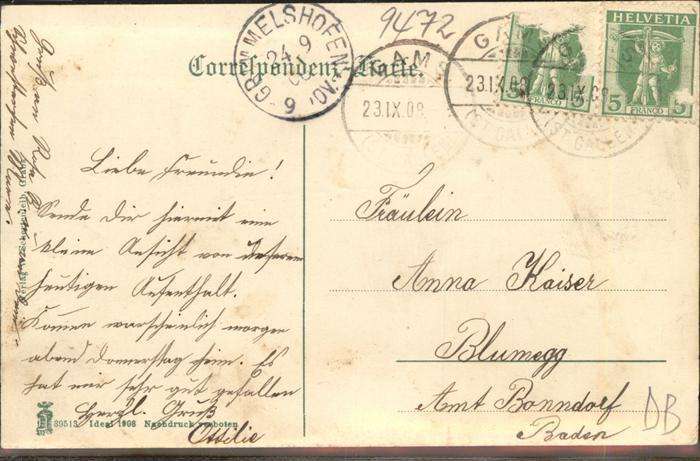 9472
Correspondenz-Karte.
GRIMMELSHOFEN
24 9
GAMS
23.IX.08
23.IX.08
23.IX.08
ST. GALLEN
HELVETIA
5 FRANCO 5
FRANCO 5
Liebe Freundin!
Sende dir hiermit eine
kleine Ansicht von unserem
heutigen Aufenthalt.
Kommen warscheinlich morgen
abend Donnerstag heim. Es
hat mir sehr gut gefallen
Herzl. Gruß
Ottilie
Fräulein
Anna Kaiser
Blumegg
Amt Bonndorf
Baden
DB
39513 Ideal 1908 Nachdruck verboten